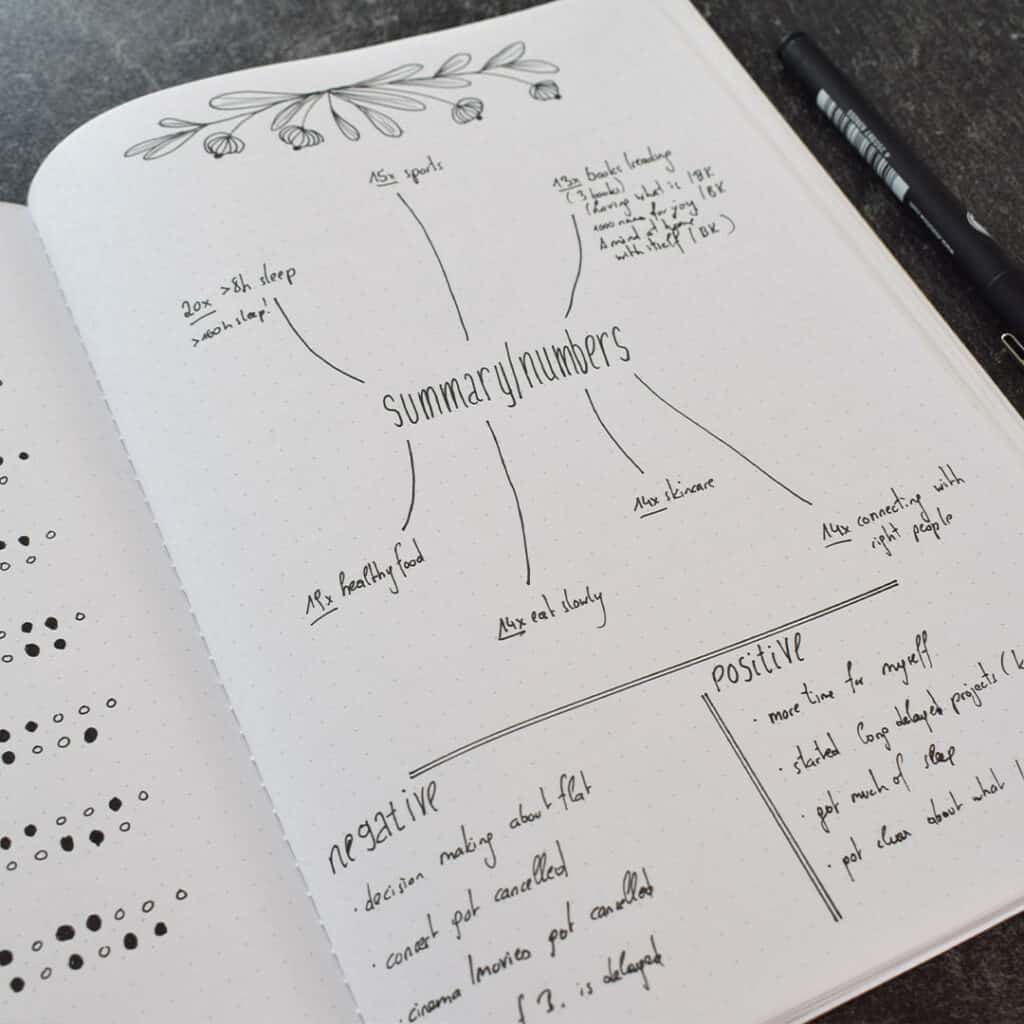 15x sports
13x books (reading
(3 books)
(Loving what is / BK
1000 names for joy / BK
A mind at home
with itself / BK)
20x >8h sleep
>160h sleep!
summary/numbers
14x skincare
14x connecting with
right people
19x healthy food
14x eat slowly
positive
· more time for myself
· started long delayed projects (
· got much of sleep
· got clear about what I
negative
· decision making about flat
· concert got cancelled
· cinema/movies got cancelled
3. is delayed